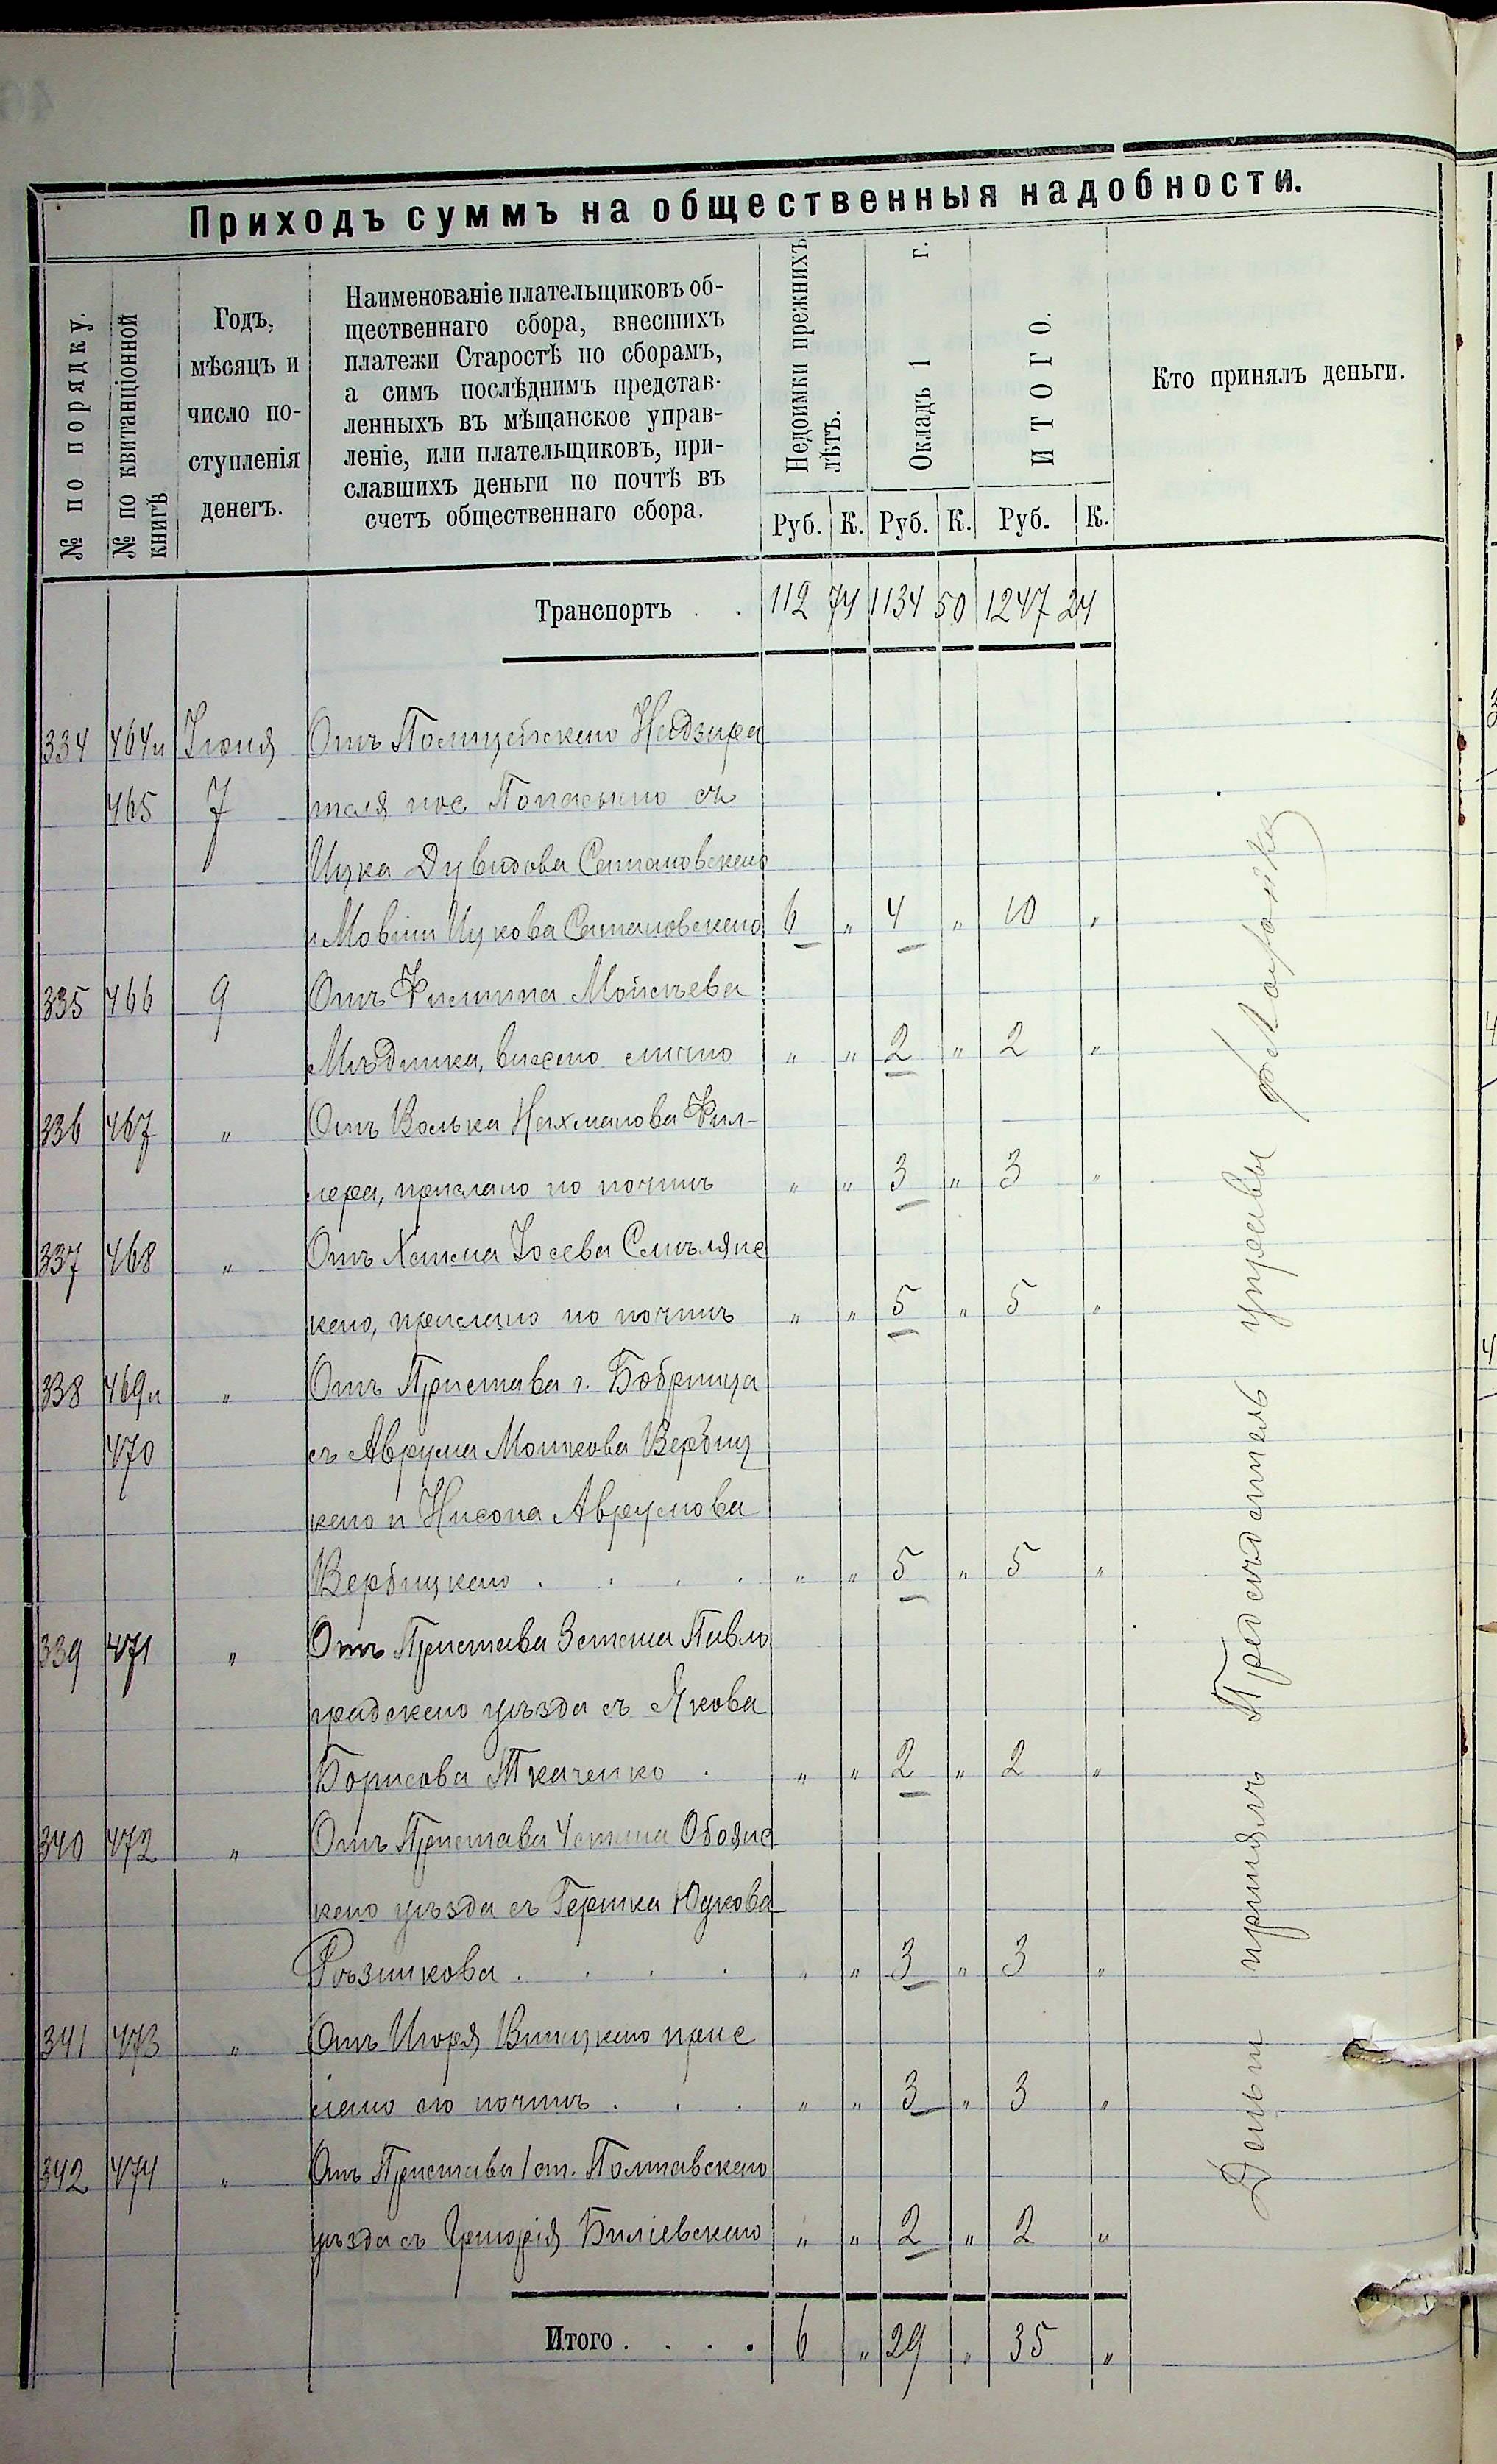 Приходъ суммъ на общественныя надобности.
№ по порядку.
№ по квитанціонной
книгѣ
Годъ,
мѣсяцъ и
число по-
ступленія
денегъ.
Наименованіе плательщиковъ об-
щественнаго сбора, внесшихъ
платежи Старостѣ по сборамъ,
а симъ послѣднимъ представ-
ленныхъ въ мѣщанское управ-
леніе, или плательщиковъ, при-
славшихъ деньги по почтѣ въ
счетъ общественнаго сбора.
Недоимки прежнихъ
лѣтъ.
Окладъ 1 г.
ИТОГО.
Кто принялъ деньги.
Руб. К. Руб. К. Руб. К.
Транспортъ . . 112 74 1134 50 1247 24
334 464 и Іюня Отъ Полицейскаго Надзира
465 7 теля пос. съ
Ицка Дувидова Сатановскаго
и Мовши Ицкова Сатановскаго 6 „ 4 „ 10 „
335 466 9 Отъ Филиппа Мойсѣева
Мѣдника, внесено лично „ „ 2 „ 2 „
336 467 „ Отъ Волька Нахманова Фил-
лера, прислано по почтѣ „ „ 3 „ 3 „
337 468 „ Отъ Хаима Іосева Смѣлянс
каго, прислано по почтѣ „ „ 5 „ 5 „
338 469 и „ Отъ Пристава г. Бобринца
470 съ Аврума Мошкова Вербиц
каго и Нисона Аврумова
Вербицкаго . . . . „ „ 5 „ 5 „
339 471 „ Отъ Пристава 3 стана Павло
градскаго уѣзда съ Якова
Борисова Ткаченко . „ „ 2 „ 2 „
340 472 „ Отъ Пристава 4 стана Обоянс
каго уѣзда съ Гершка Юдкова
Рѣзникова . . . . „ „ 3 „ 3 „
341 473 „ Отъ Игоря Виницкаго прис
лано по почтѣ . . . „ „ 3 „ 3 „
342 474 „ Отъ Пристава 1 ст. Полтавскаго
уѣзда съ Григорія Биліевскаго „ „ 2 „ 2 „
Итого . . . . 6 „ 29 „ 35 „
Деньги принялъ Предсѣдатель управы